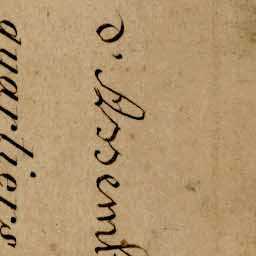 d'Assemb
quartiers